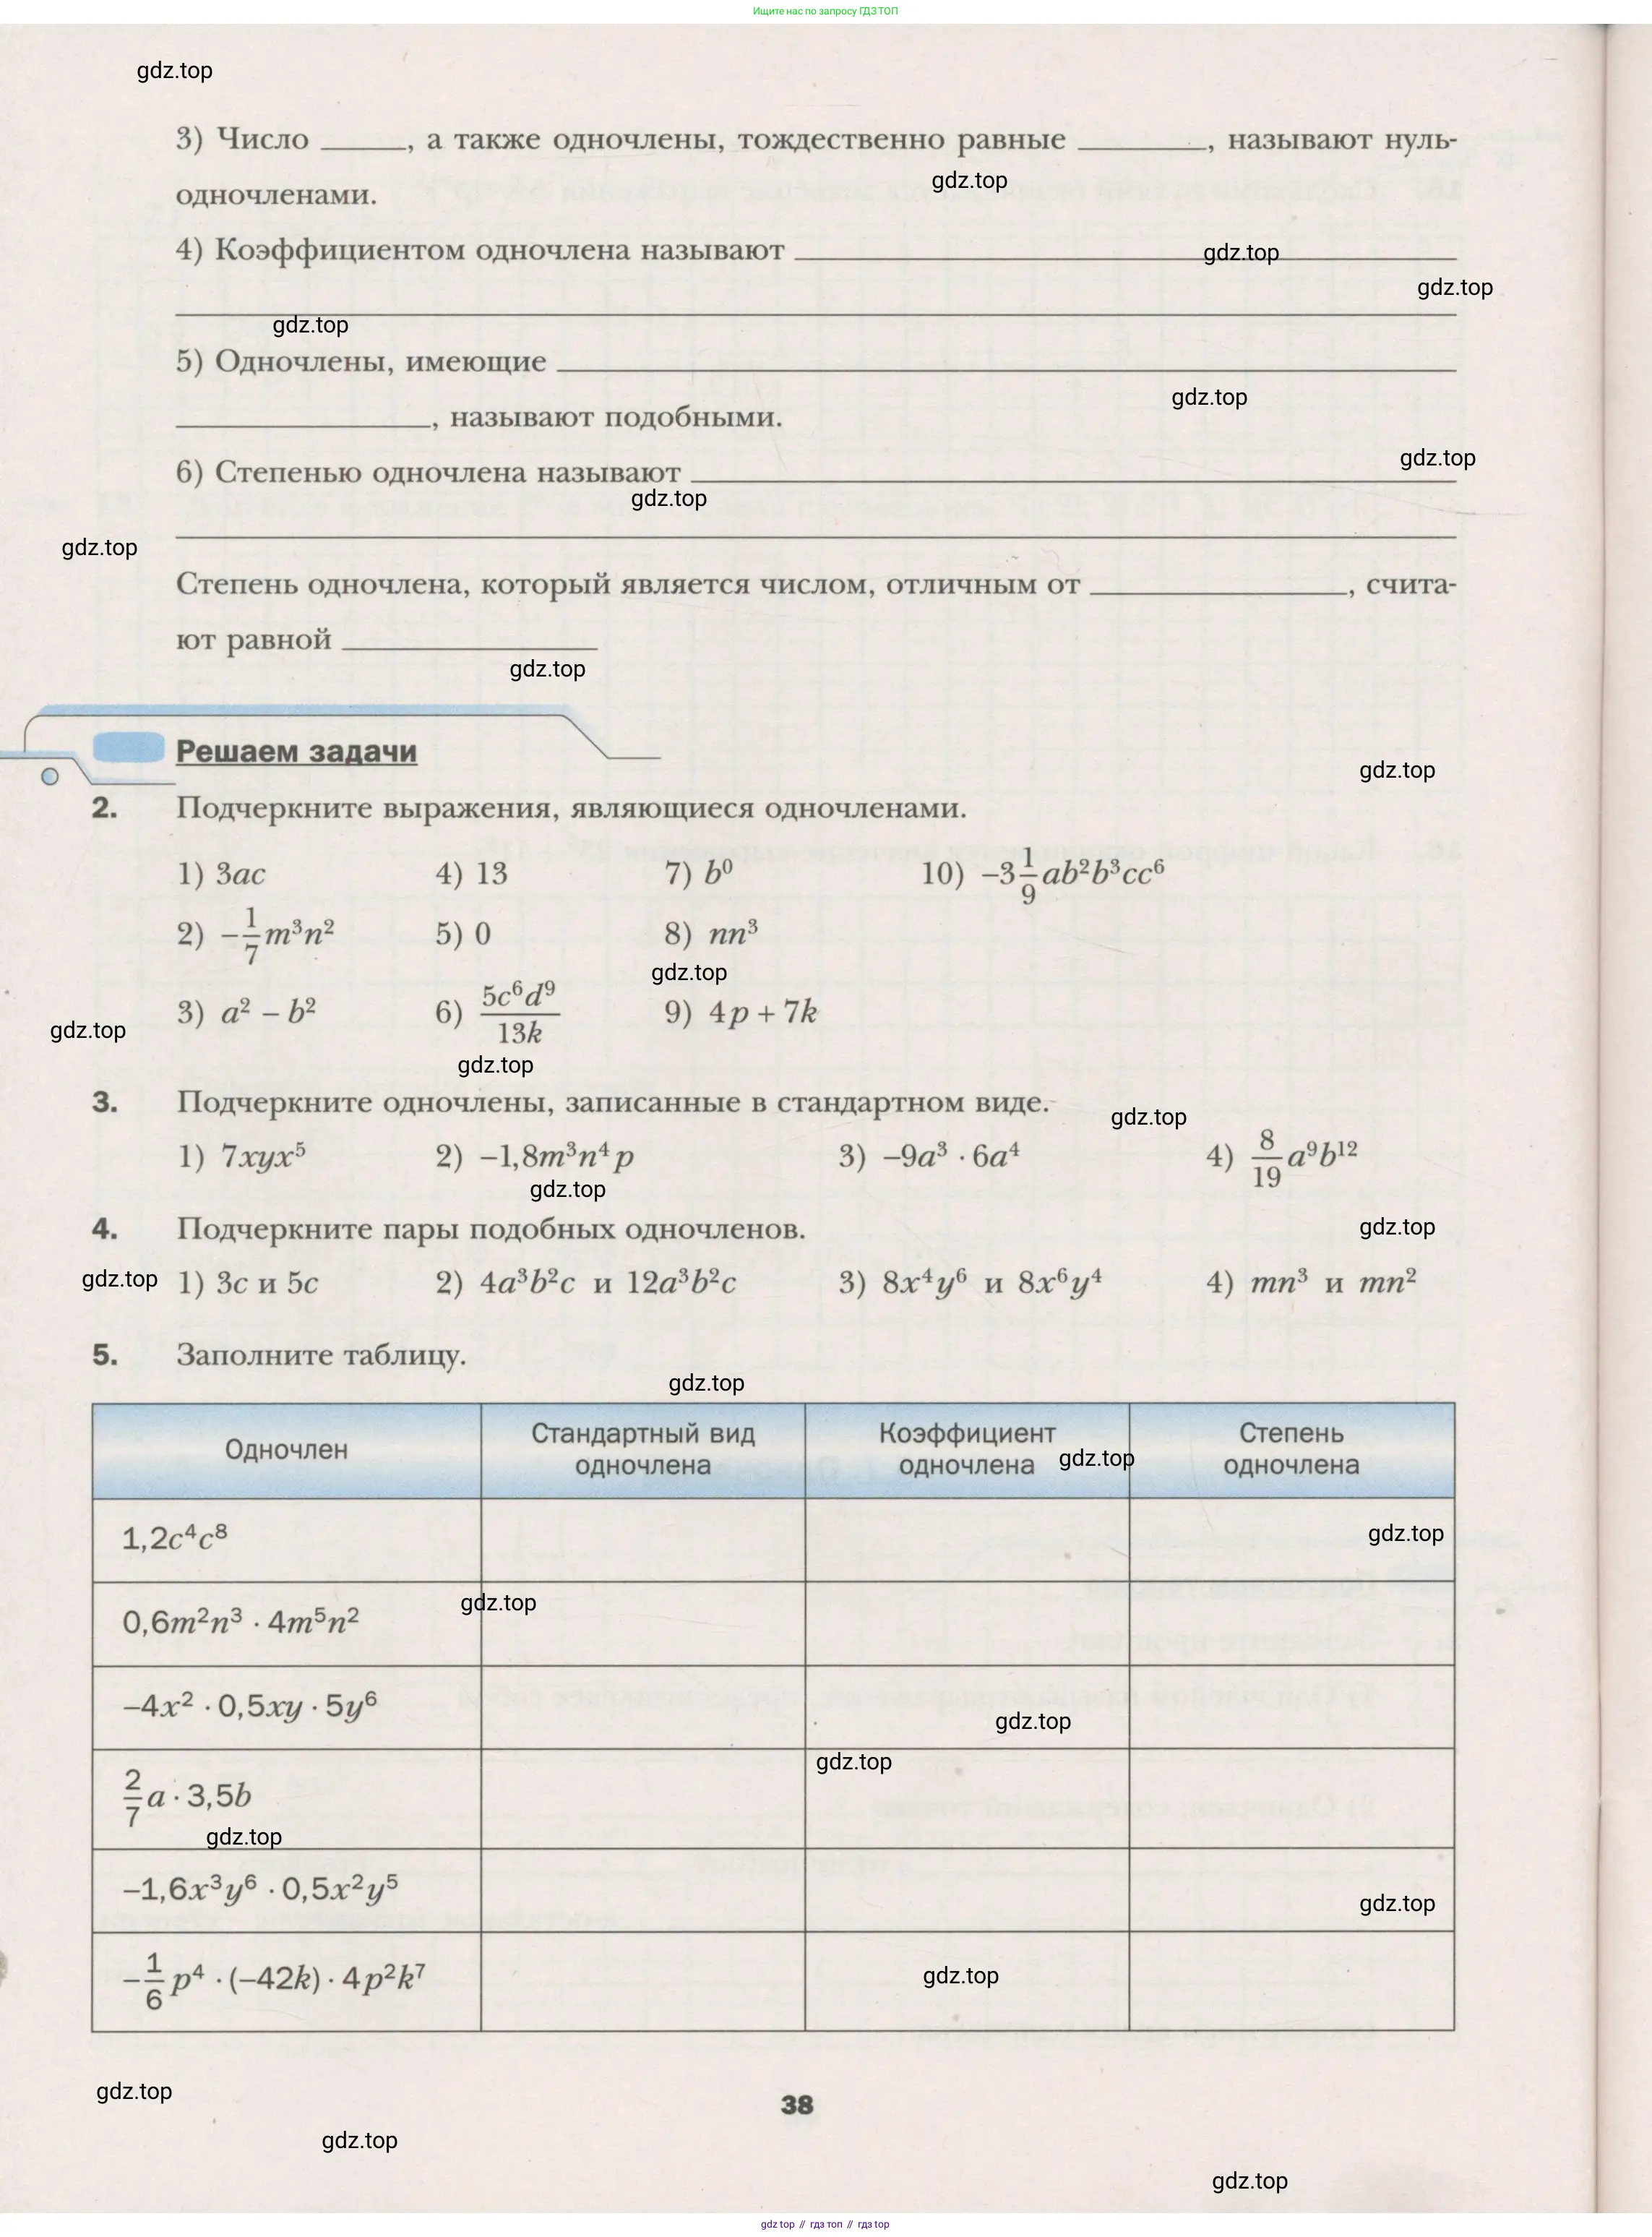 Ищите нас по запросу ГДЗ ТОП
gdz.top
3) Число _____, а также одночлены, тождественно равные ________, называют нуль-
gdz.top
одночленами.
4) Коэффициентом одночлена называют ________
gdz.top
gdz.top
gdz.top
5) Одночлены, имеющие ________
gdz.top
________, называют подобными.
gdz.top
6) Степенью одночлена называют ________
gdz.top
gdz.top
Степень одночлена, который является числом, отличным от ________, счита-
ют равной ________
gdz.top
Решаем задачи
gdz.top
2. Подчеркните выражения, являющиеся одночленами.
1) 3ac 4) 13 7) b⁰ 10) −3 1/9 ab²b³cc⁶
2) −1/7 m³n² 5) 0 8) nn³
gdz.top
3) a² − b² 6) 5c⁶d⁹/13k 9) 4p + 7k
gdz.top
gdz.top
3. Подчеркните одночлены, записанные в стандартном виде.
gdz.top
1) 7xyx⁵ 2) −1,8m³n⁴p 3) −9a³ · 6a⁴ 4) 8/19 a⁹b¹²
gdz.top
4. Подчеркните пары подобных одночленов.
gdz.top
gdz.top
1) 3c и 5c 2) 4a³b²c и 12a³b²c 3) 8x⁴y⁶ и 8x⁶y⁴ 4) mn³ и mn²
5. Заполните таблицу.
gdz.top
Одночлен Стандартный вид одночлена Коэффициент одночлена Степень одночлена
gdz.top
1,2c⁴c⁸
gdz.top
gdz.top
0,6m²n³ · 4m⁵n²
−4x² · 0,5xy · 5y⁶
gdz.top
gdz.top
2/7 a · 3,5b
gdz.top
−1,6x³y⁶ · 0,5x²y⁵
gdz.top
−1/6 p⁴ · (−42k) · 4p²k⁷
gdz.top
gdz.top
38
gdz.top
gdz.top
gdz.top // гдз топ // гдз top